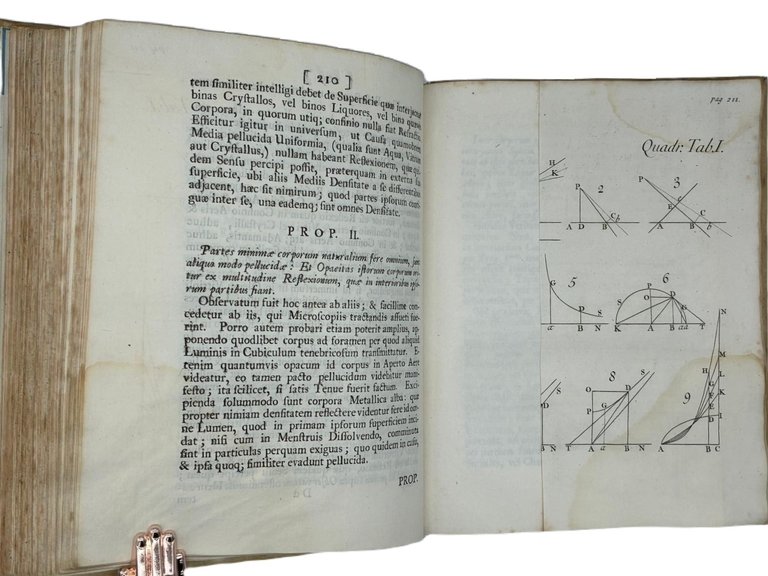 [ 210 ]
tem ſimiliter intelligi debet de Superficie quæ interjacet
binas Cryſtallos, vel binos Liquores, vel bina quævis
Corpora, in quorum utiq; confinio nulla fiat Refractio.
Efficitur igitur in univerſum, ut Cauſa quamobrem
Media pellucida Uniformia, (qualia ſunt Aqua, Vitrum
aut Cryſtallus,) nullam habeant Reflexionem, quæ qui-
dem Senſu percipi poſſit, præterquam in externa ſua
ſuperficie, ubi aliis Mediis Denſitate a ſe differentibus
adjacent, hæc ſit nimirum; quod partes ipſorum conti-
guæ inter ſe, una eademq; ſint omnes Denſitate.
PROP. II.
Partes minimæ corporum naturalium fere omnium, ſunt
aliquo modo pellucidæ: Et Opacitas iſtorum corporum ori-
tur ex multitudine Reflexionum, quæ in interioribus ipſo-
rum partibus fiant.
Obſervatum fuit hoc antea ab aliis; & facillime con-
cedetur ab iis, qui Microſcopiis tractandis aſſueti fue-
rint. Porro autem probari etiam poterit amplius, ap-
ponendo quodlibet corpus ad foramen per quod aliquid
Luminis in Cubiculum tenebricoſum tranſmittatur. E-
tenim quantumvis opacum id corpus in Aperto Aere
videatur, eo tamen pacto pellucidum videbitur mani-
feſto; ita ſcilicet, ſi ſatis Tenue fuerit factum. Exci-
pienda ſolummodo ſunt corpora Metallica alba: quæ
propter nimiam denſitatem reflectere videntur fere id om-
ne Lumen, quod in primam ipſorum ſuperficiem inci-
dat; niſi cum in Menſtruis Diſſolvendo, comminuta
ſint in particulas perquam exiguas; quo quidem in caſu,
& ipſa quoq; ſimiliter evadunt pellucida.
PROP.
pag 211.
Quadr. Tab. I.
H
K
P
2
A D B C b
P
3
E c
C
A B b
5
G
S
a B N
6
P
S O D
K A B a d T
8
O D S
P G
T A a B N
9
N
M
H L
G
F K
E
D I
A B C